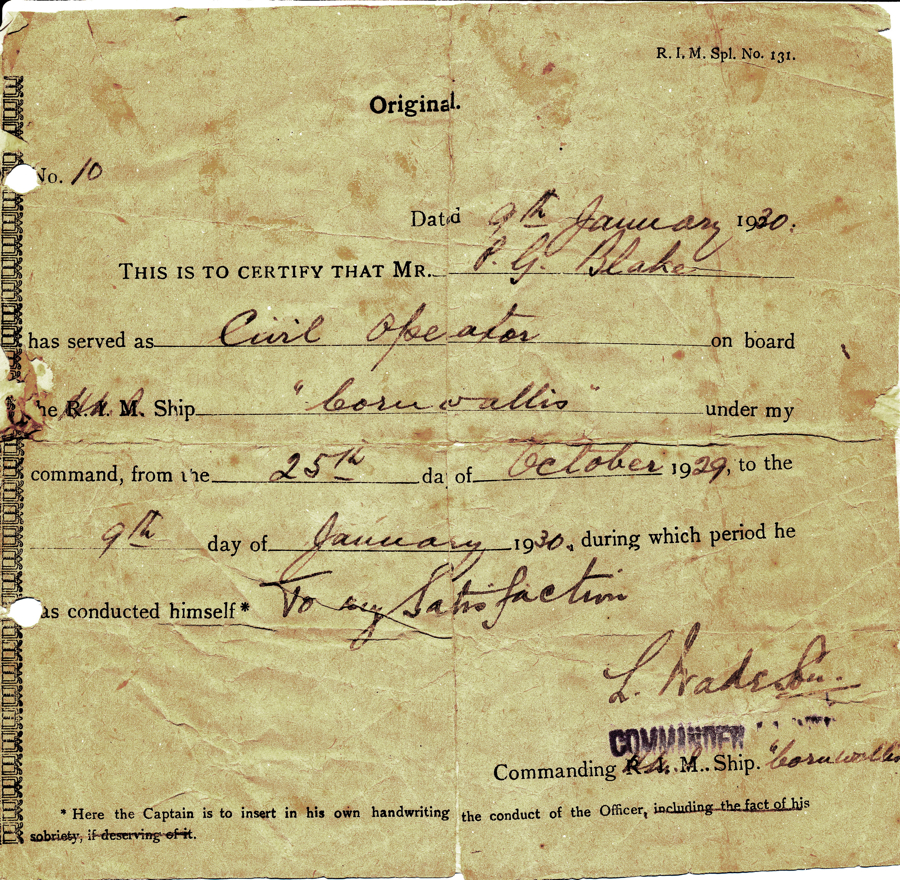 R. I. M. Spl. No. 131.
Original.
No. 10
Dated 9th January 1930.
THIS IS TO CERTIFY THAT MR. P. G. Blake
has served as Civil Operator on board
the R. I. M. Ship "Cornwallis" under my
command, from the 25th day of October 1929, to the
9th day of January 1930, during which period he
has conducted himself* To my Satisfaction
L.
COMMANDER
Commanding R. I. M. Ship. "Cornwallis
* Here the Captain is to insert in his own handwriting the conduct of the Officer, including the fact of his
sobriety, if deserving of it.